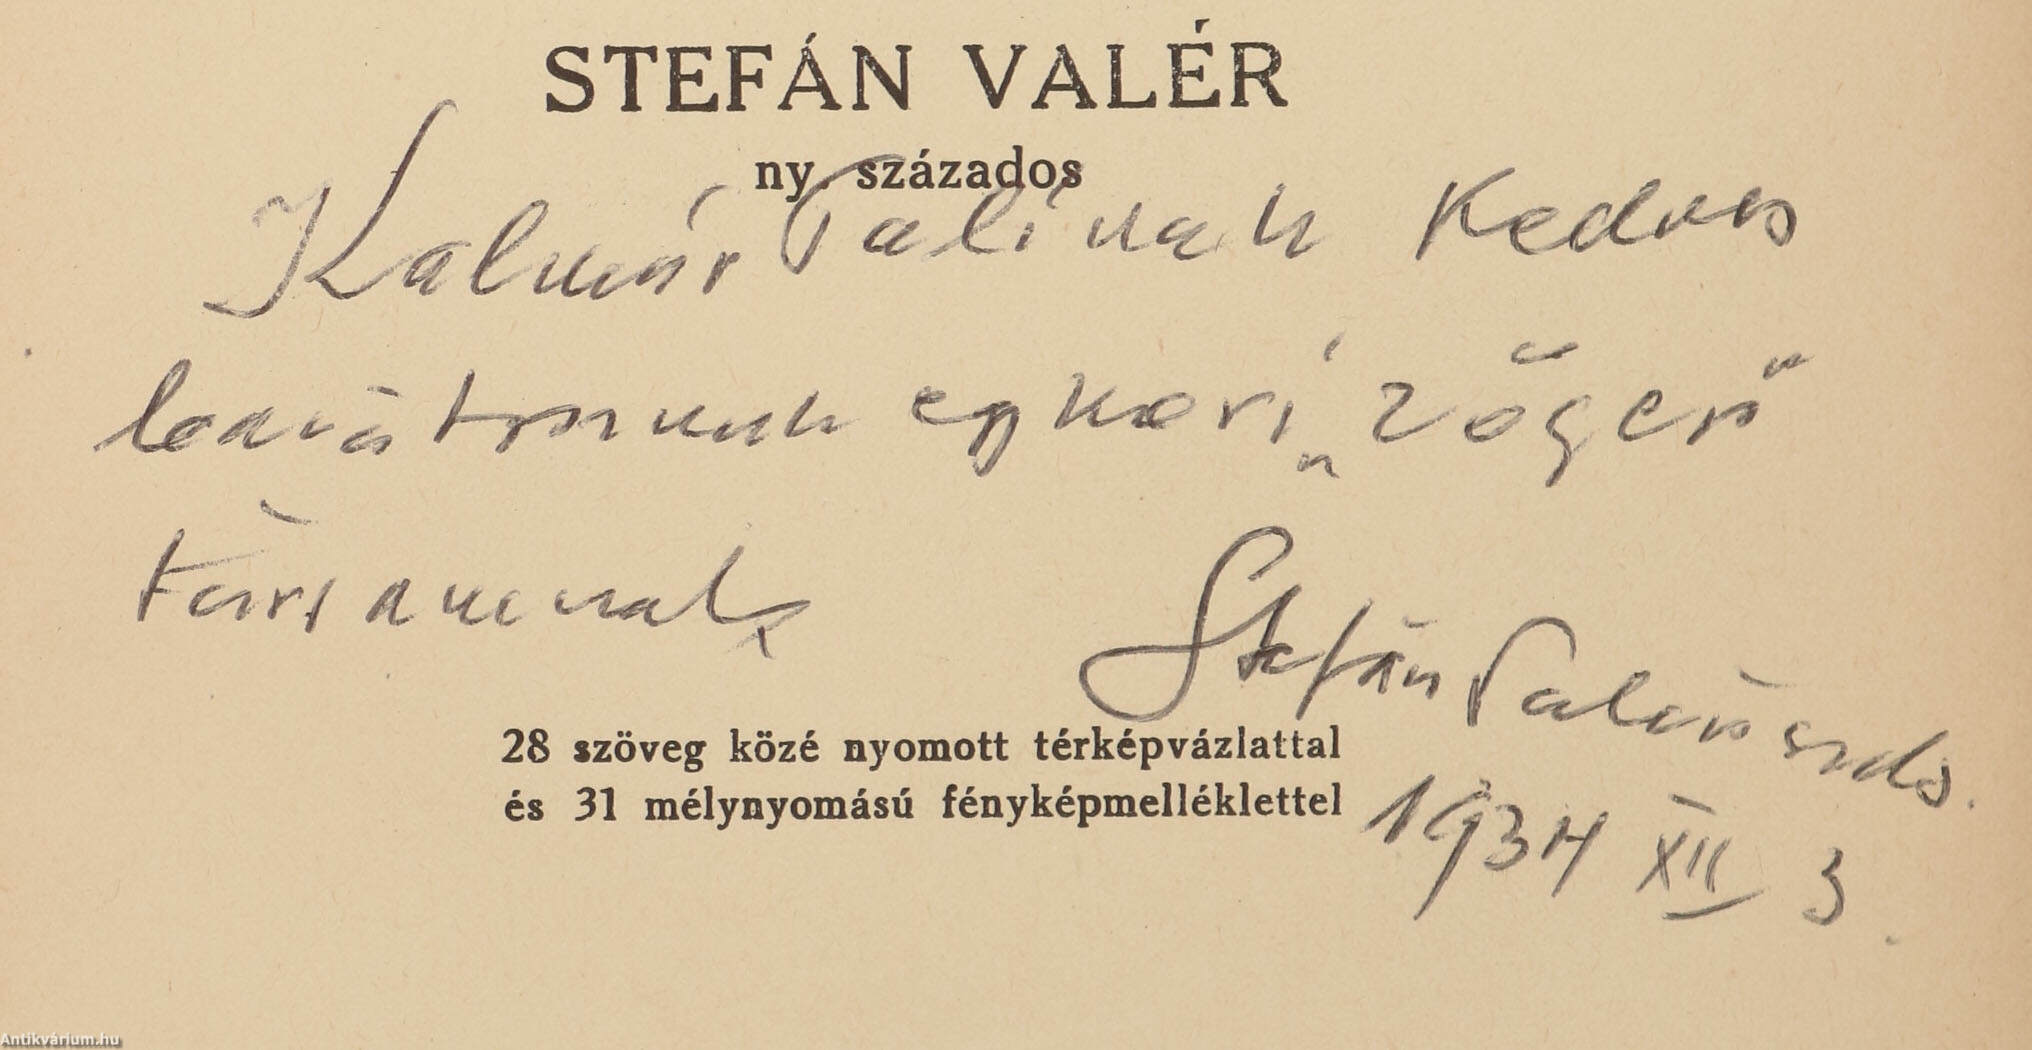 STEFÁN VALÉR
ny. százados
Kalmár Palinak kedves
barátomnak egykori „zőgerő"
társamnak
Stefán Valér szds.
28 szöveg közé nyomott térképvázlattal
és 31 mélynyomású fényképmelléklettel
1934 XII 3.
Antikvárium.hu